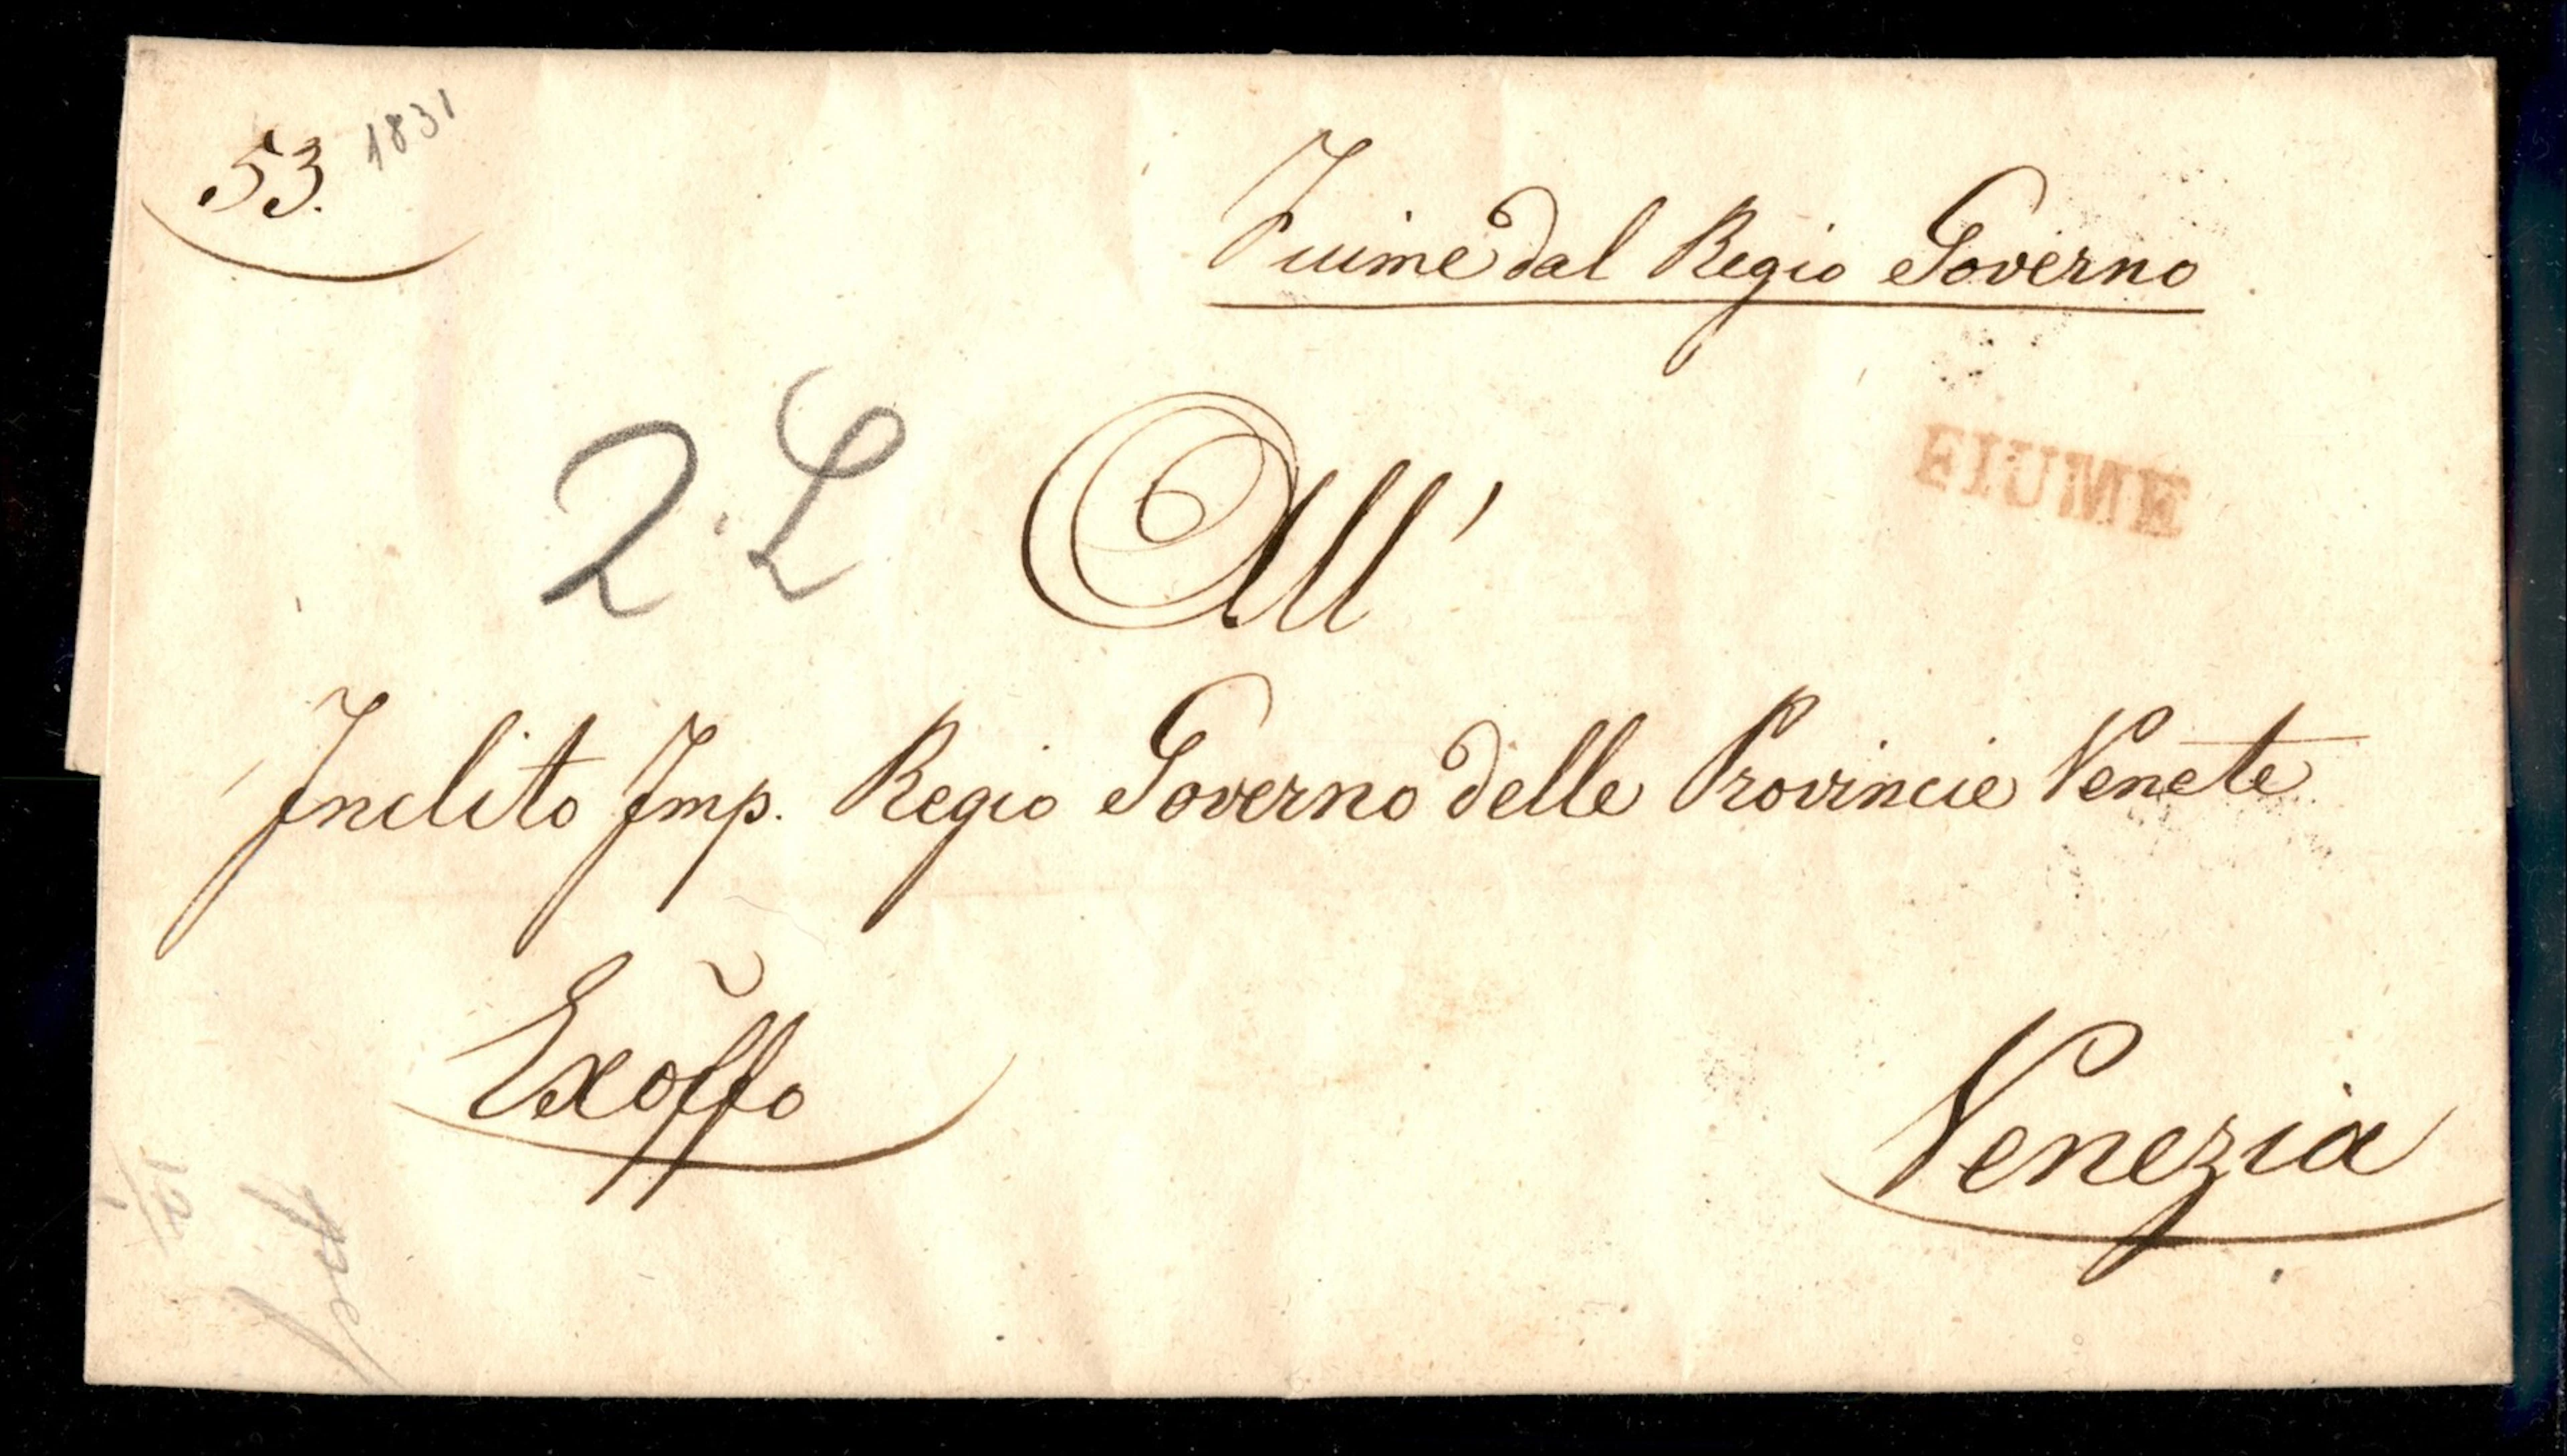 53. 1831
Fiume dal Regio Governo
FIUME
2. L
All'
Inclito Imp. Regio Governo delle Provincie Venete
Exõffo
Venezia